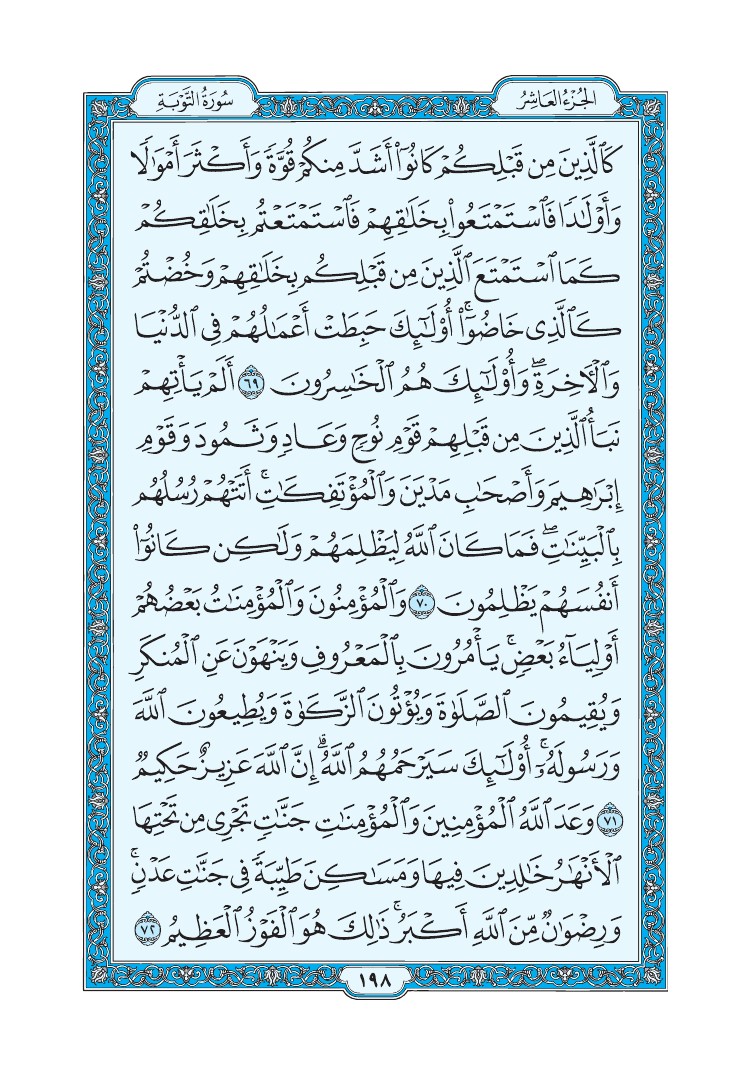 الجزء العاشر
سورة التوبة
كَٱلَّذِينَ مِن قَبۡلِكُمۡ كَانُوٓاْ أَشَدَّ مِنكُمۡ قُوَّةٗ وَأَكۡثَرَ أَمۡوَٰلٗا
وَأَوۡلَٰدٗا فَٱسۡتَمۡتَعُواْ بِخَلَٰقِهِمۡ فَٱسۡتَمۡتَعۡتُم بِخَلَٰقِكُمۡ
كَمَا ٱسۡتَمۡتَعَ ٱلَّذِينَ مِن قَبۡلِكُم بِخَلَٰقِهِمۡ وَخُضۡتُمۡ
كَٱلَّذِي خَاضُوٓاْۚ أُوْلَٰٓئِكَ حَبِطَتۡ أَعۡمَٰلُهُمۡ فِي ٱلدُّنۡيَا
وَٱلۡأٓخِرَةِۖ وَأُوْلَٰٓئِكَ هُمُ ٱلۡخَٰسِرُونَ ٦٩ أَلَمۡ يَأۡتِهِمۡ
نَبَأُ ٱلَّذِينَ مِن قَبۡلِهِمۡ قَوۡمِ نُوحٖ وَعَادٖ وَثَمُودَ وَقَوۡمِ
إِبۡرَٰهِيمَ وَأَصۡحَٰبِ مَدۡيَنَ وَٱلۡمُؤۡتَفِكَٰتِۚ أَتَتۡهُمۡ رُسُلُهُم
بِٱلۡبَيِّنَٰتِۖ فَمَا كَانَ ٱللَّهُ لِيَظۡلِمَهُمۡ وَلَٰكِن كَانُوٓاْ
أَنفُسَهُمۡ يَظۡلِمُونَ ٧٠ وَٱلۡمُؤۡمِنُونَ وَٱلۡمُؤۡمِنَٰتُ بَعۡضُهُمۡ
أَوۡلِيَآءُ بَعۡضٖۚ يَأۡمُرُونَ بِٱلۡمَعۡرُوفِ وَيَنۡهَوۡنَ عَنِ ٱلۡمُنكَرِ
وَيُقِيمُونَ ٱلصَّلَوٰةَ وَيُؤۡتُونَ ٱلزَّكَوٰةَ وَيُطِيعُونَ ٱللَّهَ
وَرَسُولَهُۥٓۚ أُوْلَٰٓئِكَ سَيَرۡحَمُهُمُ ٱللَّهُۗ إِنَّ ٱللَّهَ عَزِيزٌ حَكِيمٞ
٧١ وَعَدَ ٱللَّهُ ٱلۡمُؤۡمِنِينَ وَٱلۡمُؤۡمِنَٰتِ جَنَّٰتٖ تَجۡرِي مِن تَحۡتِهَا
ٱلۡأَنۡهَٰرُ خَٰلِدِينَ فِيهَا وَمَسَٰكِنَ طَيِّبَةٗ فِي جَنَّٰتِ عَدۡنٖۚ
وَرِضۡوَٰنٞ مِّنَ ٱللَّهِ أَكۡبَرُۚ ذَٰلِكَ هُوَ ٱلۡفَوۡزُ ٱلۡعَظِيمُ ٧٢
١٩٨